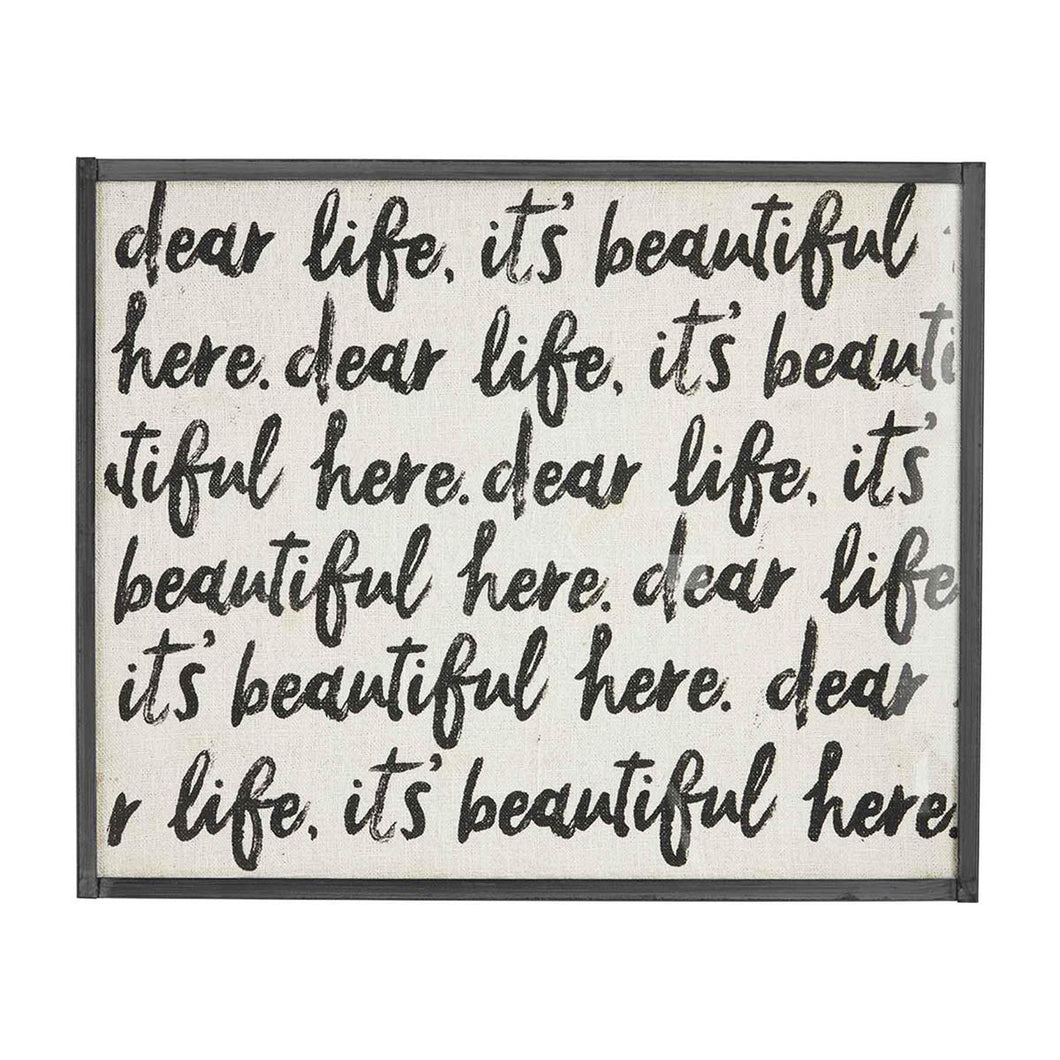 dear life, it's beautiful
here. dear life, it's beauti
tiful here. dear life, it's
beautiful here. dear life
it's beautiful here. dear
r life, it's beautiful here.